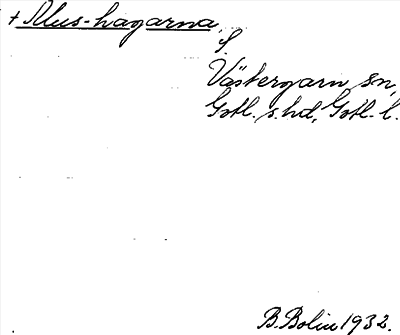 + Klus-hagarna,
f.
Västergarn sn,
Gotl. s. hd, Gotl. l.
B. Bolin 1932.